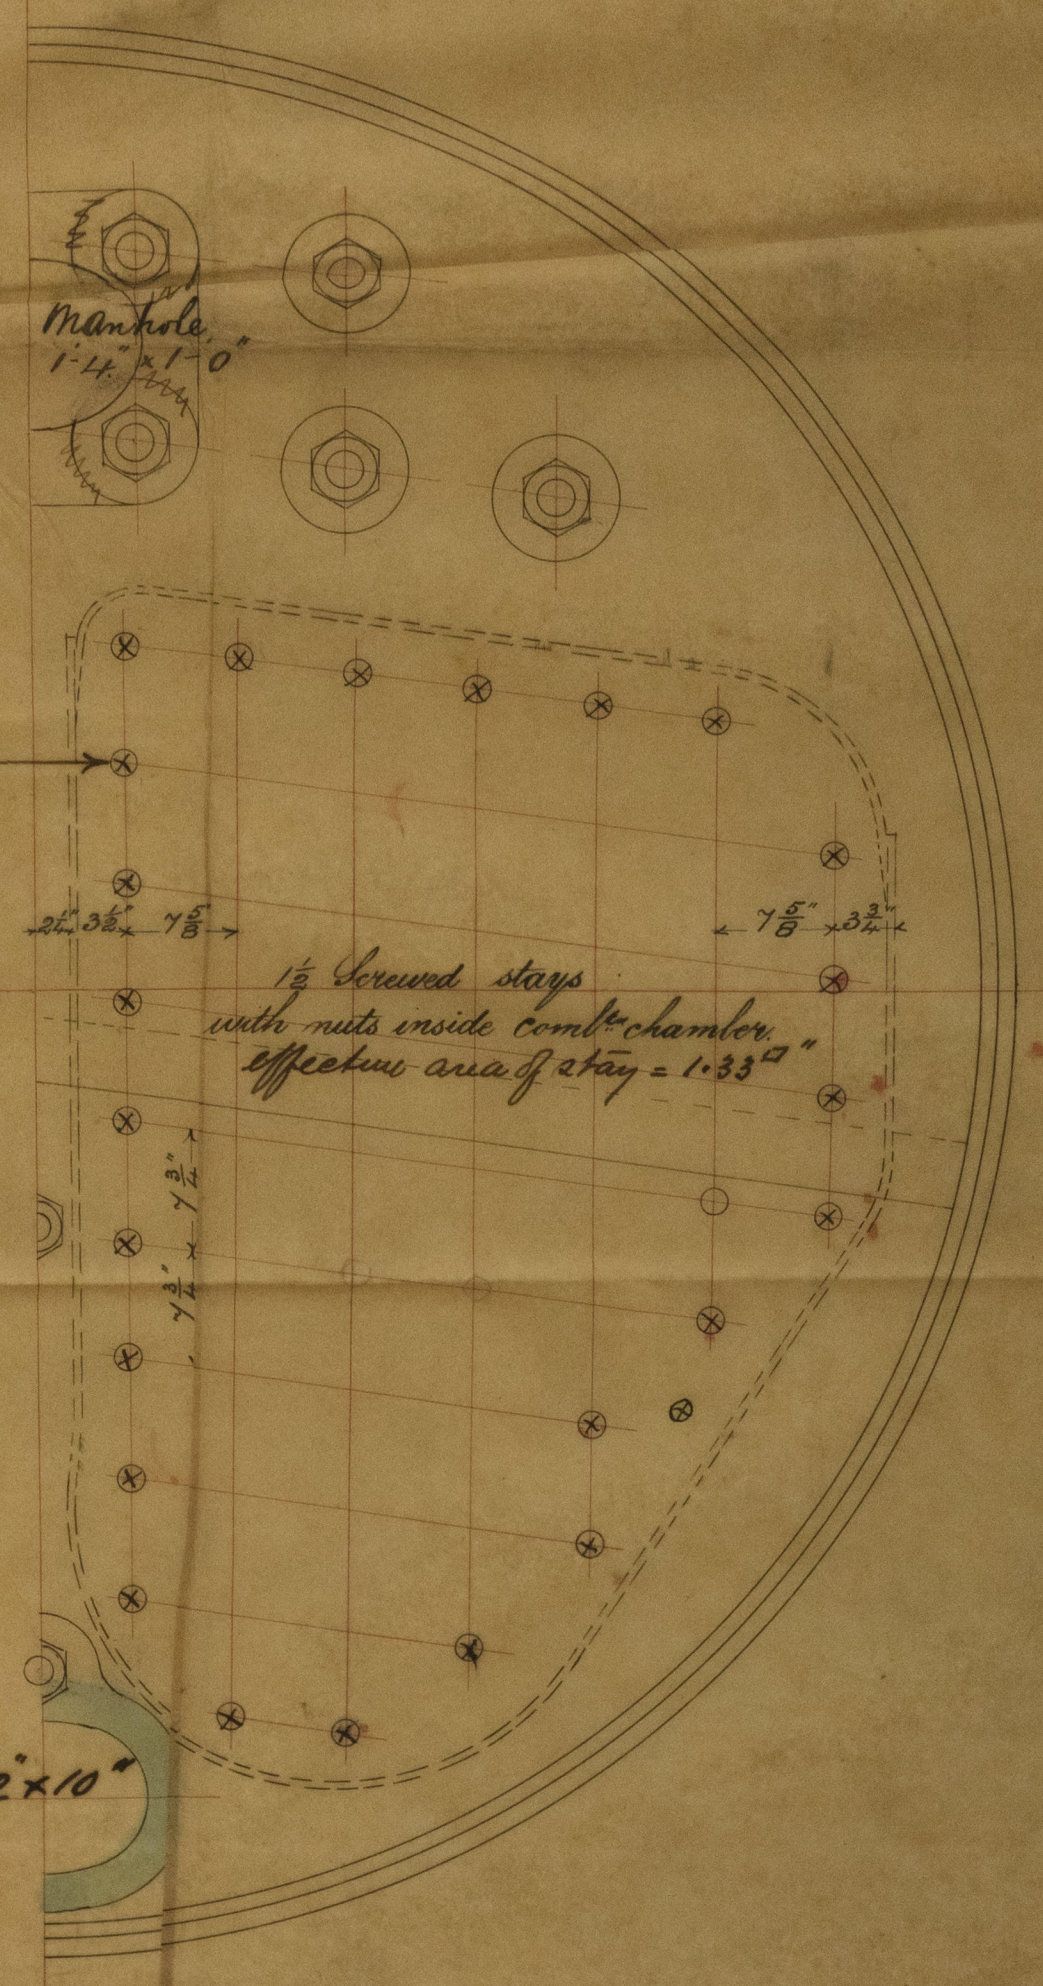 Manhole.
1'-4" × 1'-0"
2 1/4" 3 1/2" 7 5/8"
7 5/8" 3 3/4"
1 1/2 Screwed stays
with nuts inside combtn chamber.
effective area of stay = 1.33□"
7 3/4"
7 3/4"
2" × 10"